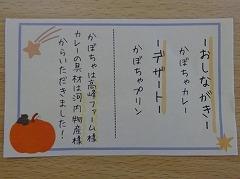 ーおしながきー
かぼちゃカレー
ーデザートー
かぼちゃプリン
かぼちゃは高峰ファーム様
カレーの具材は河内物産様
からいただきました！